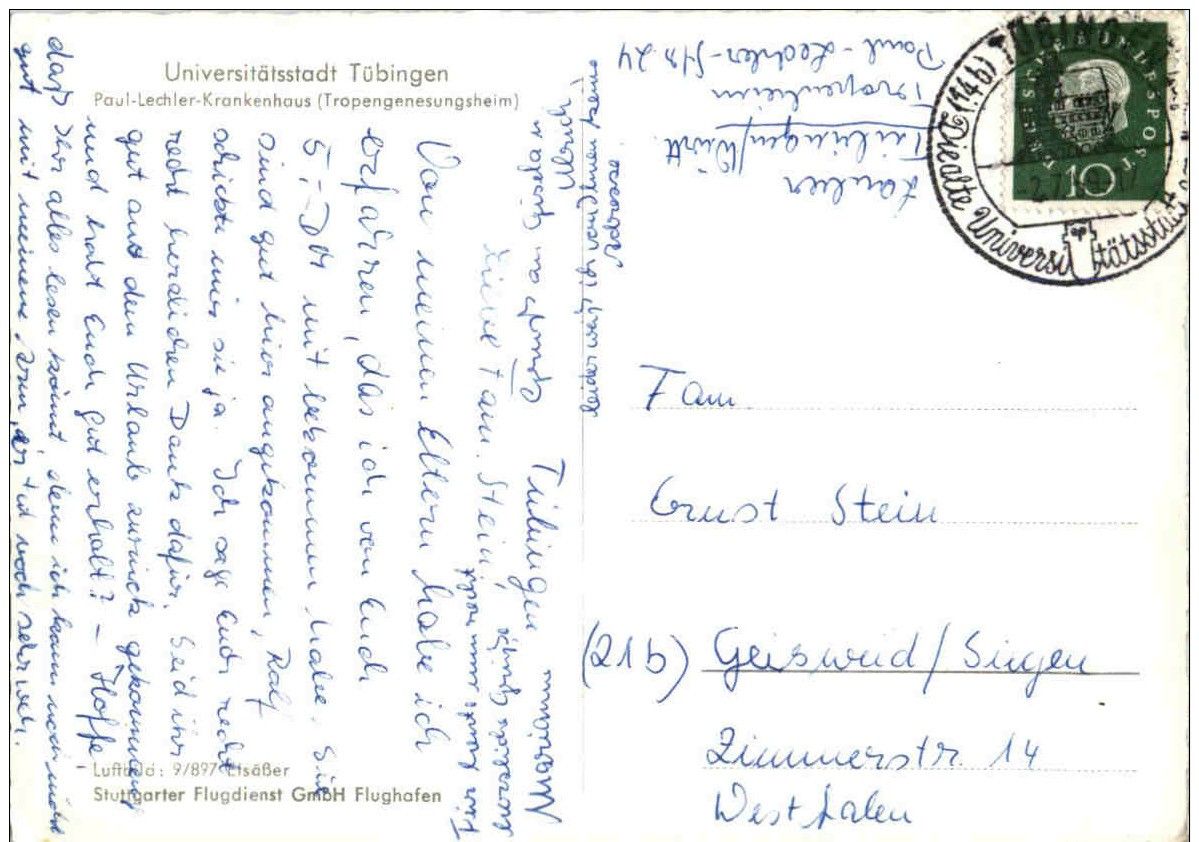 Universitätsstadt Tübingen
Paul-Lechler-Krankenhaus (Tropengenesungsheim)
Tübingen
Liebe Fam. Stein,
Von meinen Eltern habe ich
erfahren, das ich von Euch
5,- DM mit bekommen habe. Sie
sind gut hier angekommen, Rolf
schickte mir sie ja. Ich sage Euch recht
recht herzlichen Dank dafür. Seid ihr
gut aus dem Urlaub zurück gekommen
und habt Euch gut erholt? – Hoffe
daß Ihr alles lesen könnt, denn ich kann noch nicht
gut mit meinem Arm, er tut noch sehr weh.
herzliche Grüße
Marianne
Grüße an Giesela u
Ulrich
leider weiß ich von Ihnen keine
Adresse.
Luftbild: 9/897 Elsäßer
Stuttgarter Flugdienst GmbH Flughafen
Tübingen/Württ
Tropenheim
Paul-Lechler-Str. 24
DEUTSCHE BUNDESPOST
10
TÜBINGEN
Die alte Universitätsstadt
Fam.
Ernst Stein
(21b) Geisweid/Siegen
Zimmerstr. 14
Westfalen